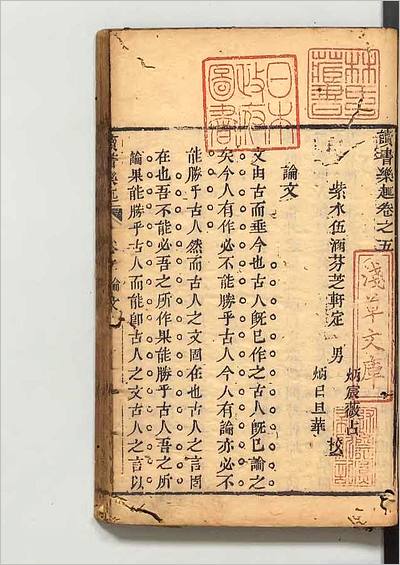 林氏藏書
日本政府圖書
淺草文庫
讀書樂趣卷之五
紫水伍涵芬芝軒定 男
炳宸薇占
炳日旦華
校
論文
文由古而垂今也古人既已作之古人既已論之
矣今人有作必不能勝乎古人今人有論亦必不
能勝乎古人然而古人之文固在也古人之言固
在也吾不能必吾之所作果能勝乎古人吾之所
論果能勝乎古人而能卽古人之文古人之言以
讀書樂趣
論文